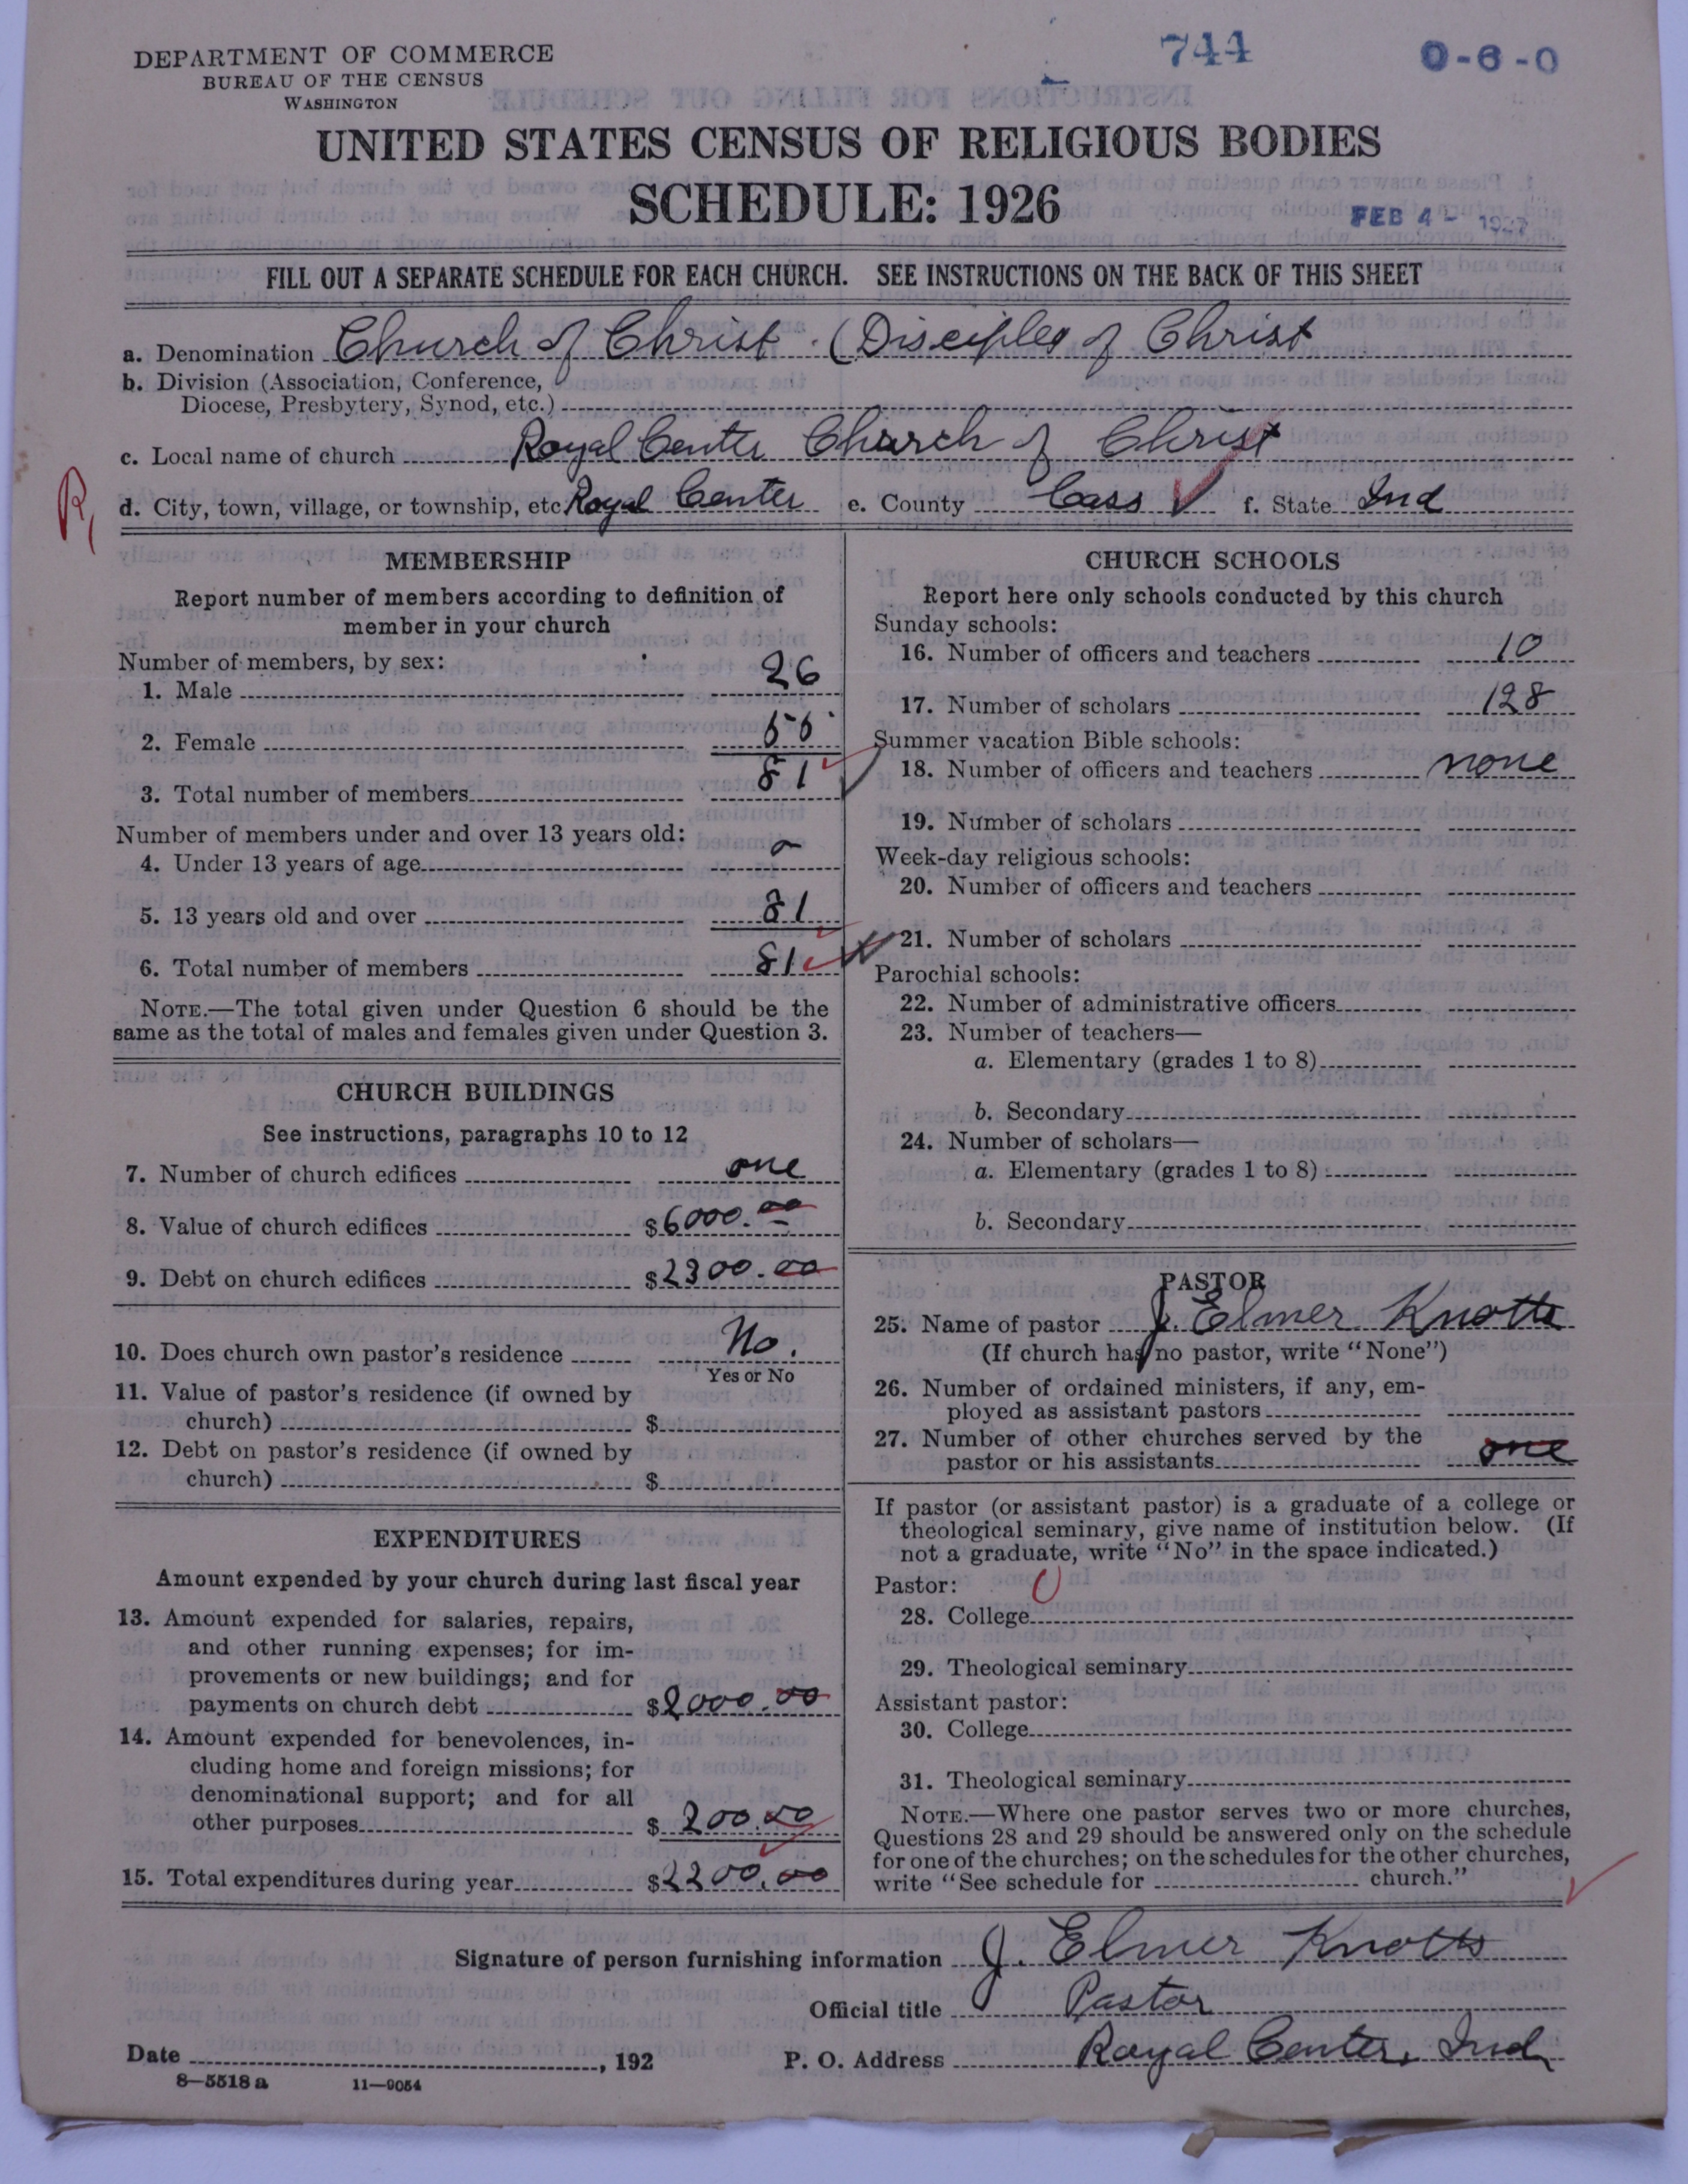 DEPARTMENT OF COMMERCE
BUREAU OF THE CENSUS
WASHINGTON
744
0-6-0
UNITED STATES CENSUS OF RELIGIOUS BODIES
SCHEDULE: 1926
FEB 4 - 1927
FILL OUT A SEPARATE SCHEDULE FOR EACH CHURCH. SEE INSTRUCTIONS ON THE BACK OF THIS SHEET
a. Denomination Church of Christ (Disciples of Christ
b. Division (Association, Conference,
Diocese, Presbytery, Synod, etc.)
c. Local name of church Royal Center Church of Christ
d. City, town, village, or township, etc. Royal Center e. County Cass f. State Ind
MEMBERSHIP
Report number of members according to definition of
member in your church
Number of members, by sex:
1. Male 26
2. Female 55
3. Total number of members 81
Number of members under and over 13 years old:
4. Under 13 years of age
5. 13 years old and over 81
6. Total number of members 81
NOTE.—The total given under Question 6 should be the
same as the total of males and females given under Question 3.
CHURCH BUILDINGS
See instructions, paragraphs 10 to 12
7. Number of church edifices one
8. Value of church edifices $6000.00
9. Debt on church edifices $2300.00
10. Does church own pastor's residence No.
Yes or No
11. Value of pastor's residence (if owned by
church) $
12. Debt on pastor's residence (if owned by
church) $
EXPENDITURES
Amount expended by your church during last fiscal year
13. Amount expended for salaries, repairs,
and other running expenses; for im-
provements or new buildings; and for
payments on church debt $2000.00
14. Amount expended for benevolences, in-
cluding home and foreign missions; for
denominational support; and for all
other purposes $200.00
15. Total expenditures during year $2200.00
CHURCH SCHOOLS
Report here only schools conducted by this church
Sunday schools:
16. Number of officers and teachers 10
17. Number of scholars 128
Summer vacation Bible schools:
18. Number of officers and teachers none
19. Number of scholars
Week-day religious schools:
20. Number of officers and teachers
21. Number of scholars
Parochial schools:
22. Number of administrative officers
23. Number of teachers—
a. Elementary (grades 1 to 8)
b. Secondary
24. Number of scholars—
a. Elementary (grades 1 to 8)
b. Secondary
PASTOR
25. Name of pastor J. Elmer Knotts
(If church has no pastor, write "None")
26. Number of ordained ministers, if any, em-
ployed as assistant pastors
27. Number of other churches served by the
pastor or his assistants one
If pastor (or assistant pastor) is a graduate of a college or
theological seminary, give name of institution below. (If
not a graduate, write "No" in the space indicated.)
Pastor:
28. College
29. Theological seminary
Assistant pastor:
30. College
31. Theological seminary
NOTE.—Where one pastor serves two or more churches,
Questions 28 and 29 should be answered only on the schedule
for one of the churches; on the schedules for the other churches,
write "See schedule for church."
Signature of person furnishing information J. Elmer Knotts
Official title Pastor
Date , 192 P. O. Address Royal Center, Ind
8—5518 a 11—9054